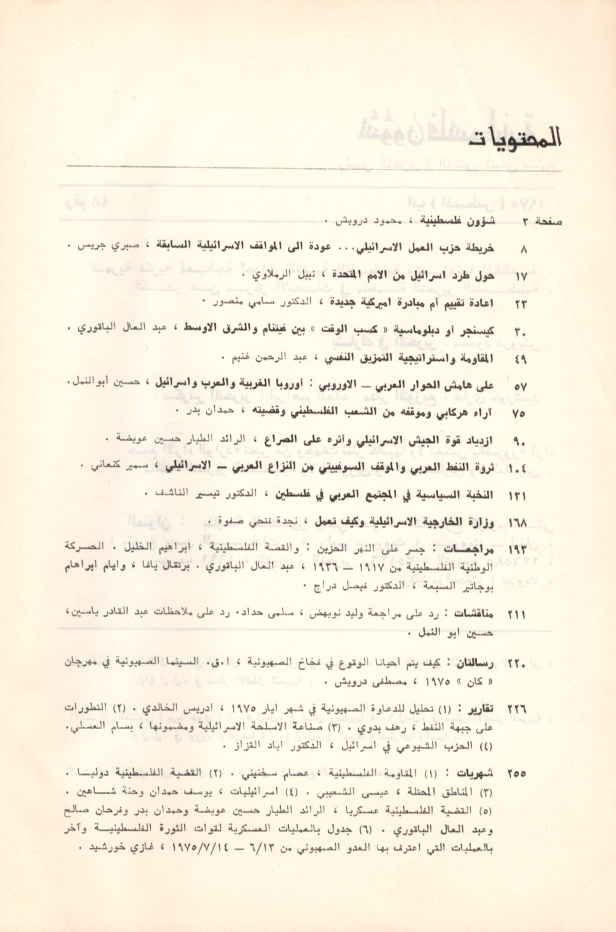 المحتويات
صفحة ٣ شؤون فلسطينية ، محمود درويش .
٨ خريطة حزب العمل الاسرائيلي... عودة الى المواقف الاسرائيلية السابقة ، صبري جريس .
١٧ حول طرد اسرائيل من الامم المتحدة ، نبيل الرملاوي .
٢٣ اعادة تقييم أم مبادرة اميركية جديدة ، الدكتور سامي منصور .
٣٠ كيسنجر أو دبلوماسية « كسب الوقت » بين فيتنام والشرق الاوسط ، عبد العال الباقوري .
٤٩ المقاومة واستراتيجية التمزيق النفسي ، عبد الرحمن غنيم .
٥٧ على هامش الحوار العربي — الاوروبي : أوروبا الغربية والعرب واسرائيل ، حسين أبوالنمل.
٧٥ آراء هركابي وموقفه من الشعب الفلسطيني وقضيته ، حمدان بدر .
٩٠ ازدياد قوة الجيش الاسرائيلي وأثره على الصراع ، الرائد الطيار حسين عويضة .
١٠٤ ثروة النفط العربي والموقف السوفييتي من النزاع العربي — الاسرائيلي ، سمير كنعاني .
١٣١ النخبة السياسية في المجتمع العربي في فلسطين ، الدكتور تيسير الناشف .
١٦٨ وزارة الخارجية الاسرائيلية وكيف تعمل ، نجدة فتحي صفوة .
١٩٣ مراجعـــات : جسر على النهر الحزين : والقصة الفلسطينية ، ابراهيم الخليل . الحسركة
الوطنية الفلسطينية من ١٩١٧ — ١٩٣٦ ، عبد العال الباقوري . برتقال يافا ، وايام ابراهام
بوجاتير السبعة ، الدكتور فيصل دراج .
٢١١ مناقشات : رد على مراجعة وليد نويهض ، سلمى حداد. رد على ملاحظات عبد القادر ياسين،
حسين ابو النمل .
٢٢٠ رسالتان : كيف يتم أحيانا الوقوع في فخاخ الصهيونية ، ا.ق. السينما الصهيونية في مهرجان
« كان » ١٩٧٥ ، مصطفى درويش .
٢٢٦ تقارير : (١) تحليل للدعاوة الصهيونية في شهر ايار ١٩٧٥ ، ادريس الخالدي . (٢) التطورات
على جبهة النفط ، رهف بدوي . (٣) صناعة الاسلحة الاسرائيلية ومضمونها ، بسام العسلي.
(٤) الحزب الشيوعي في اسرائيل ، الدكتور اياد القزاز .
٢٥٥ شهريات : (١) المقاومة الفلسطينية ، عصام سخنيني . (٢) القضية الفلسطينية دوليـا .
(٣) المناطق المحتلة ، عيسى الشعيبي . (٤) اسرائيليات ، يوسف حمدان وحنة شـاهين .
(٥) القضية الفلسطينية عسكريا ، الرائد الطيار حسين عويضة وحمدان بدر وفرحان صالح
وعبد العال الباقوري . (٦) جدول بالعمليات العسكرية لقوات الثورة الفلسطينيـة وآخر
بالعمليات التي اعترف بها العدو الصهيوني من ٦/١٣ — ١٩٧٥/٧/١٤ ، غازي خورشيد .